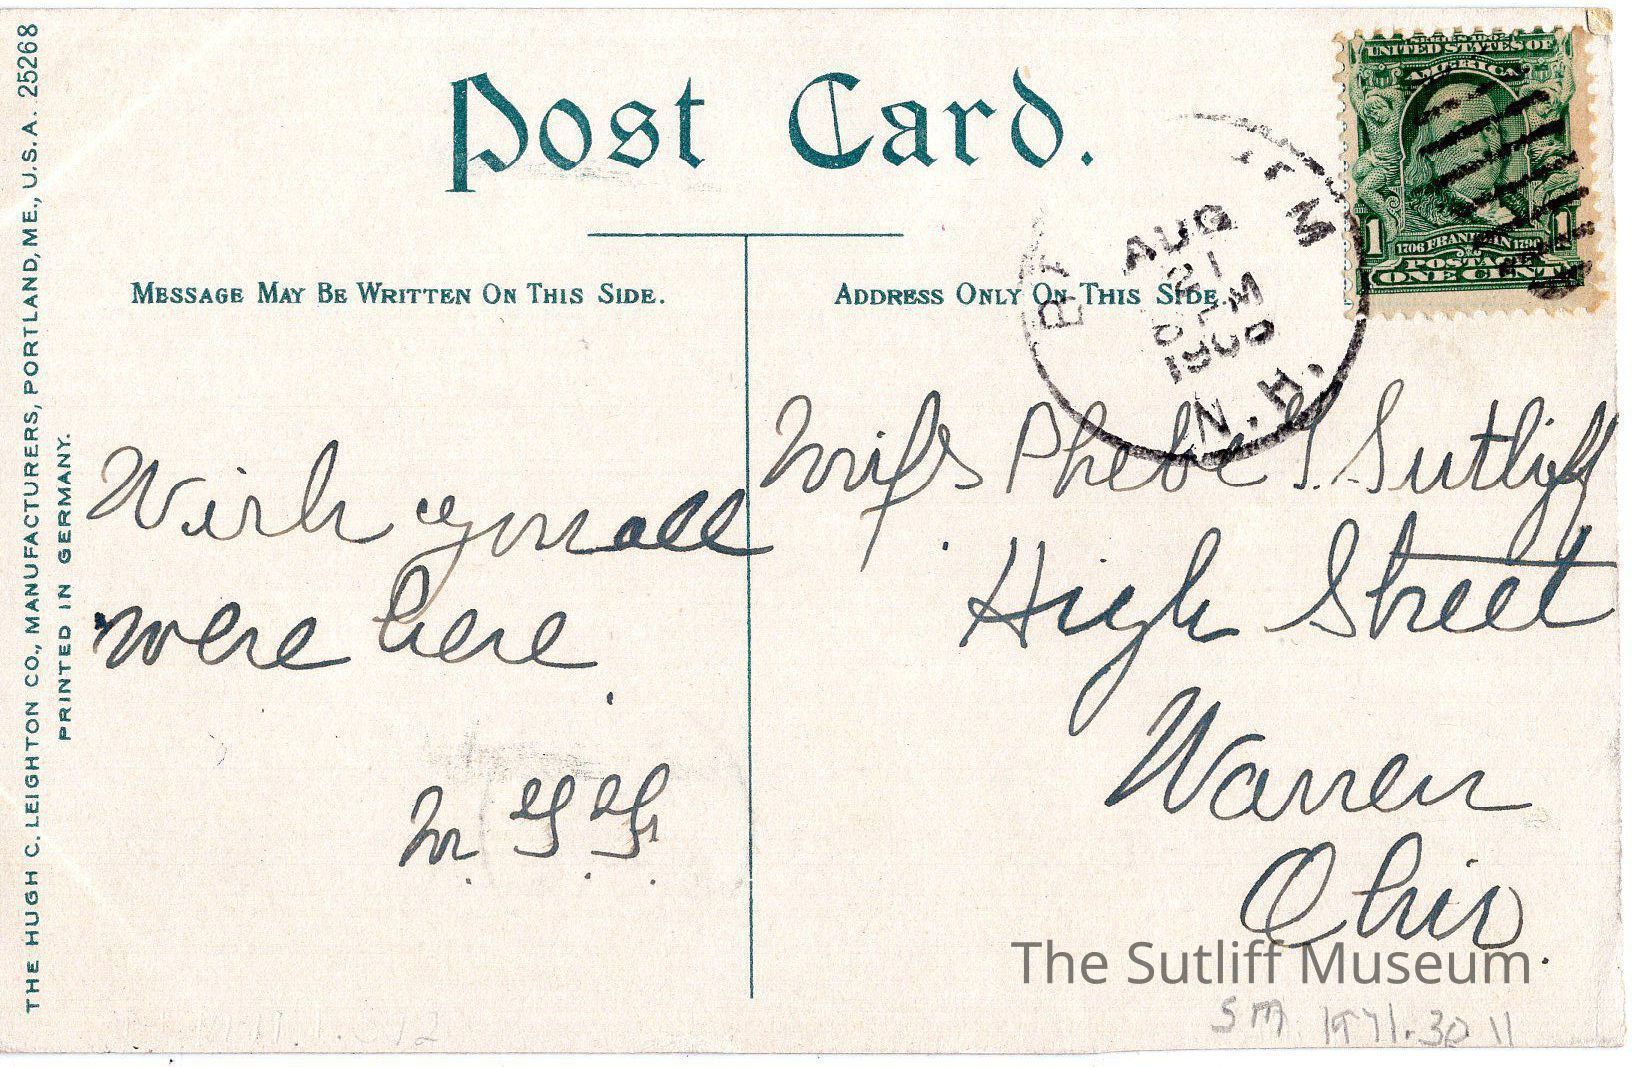 THE HUGH C. LEIGHTON CO., MANUFACTURERS, PORTLAND, ME., U.S.A. 25268
PRINTED IN GERMANY.
Post Card.
MESSAGE MAY BE WRITTEN ON THIS SIDE.
ADDRESS ONLY ON THIS SIDE.
SERIES 1902
UNITED STATES OF
AMERICA
1 1
1706 FRANKLIN 1790
POSTAGE
ONE CENT
AUG
21
N.H.
Wish you all
were here.
Miss Phebe T. Sutliff
High Street
Warren
Ohio.
The Sutliff Museum
SM 1971.30 11